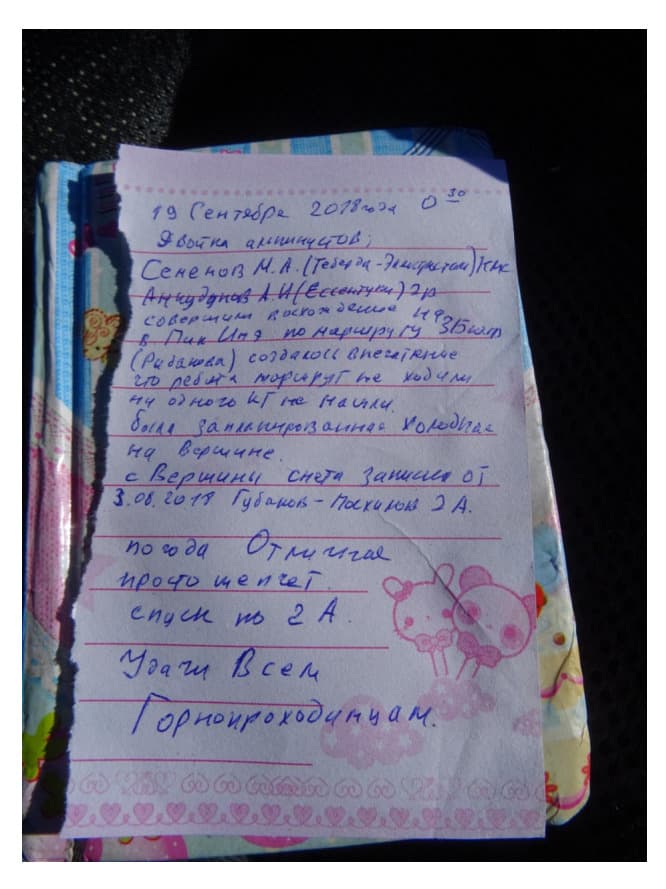 19 Сентября 2018 года 0 30
Двойка альпинистов;
Семенов М.А. (Теберда-Электросталь)
А.И (Ессентуки) 2р
совершили восхождение на
в Пик Инэ по маршруту 3Б
(Рыбакова) создалось впечатление
что ребята маршрут не ходили
ни одного КТ не нашли.
была запланированная холодная
на вершине.
с Вершины снета записка от
3.08.2018 Губанов- 2А.
погода Отличная
просто шепчет.
спуск по 2А.
Удачи Всем
Горнопроходинцам.